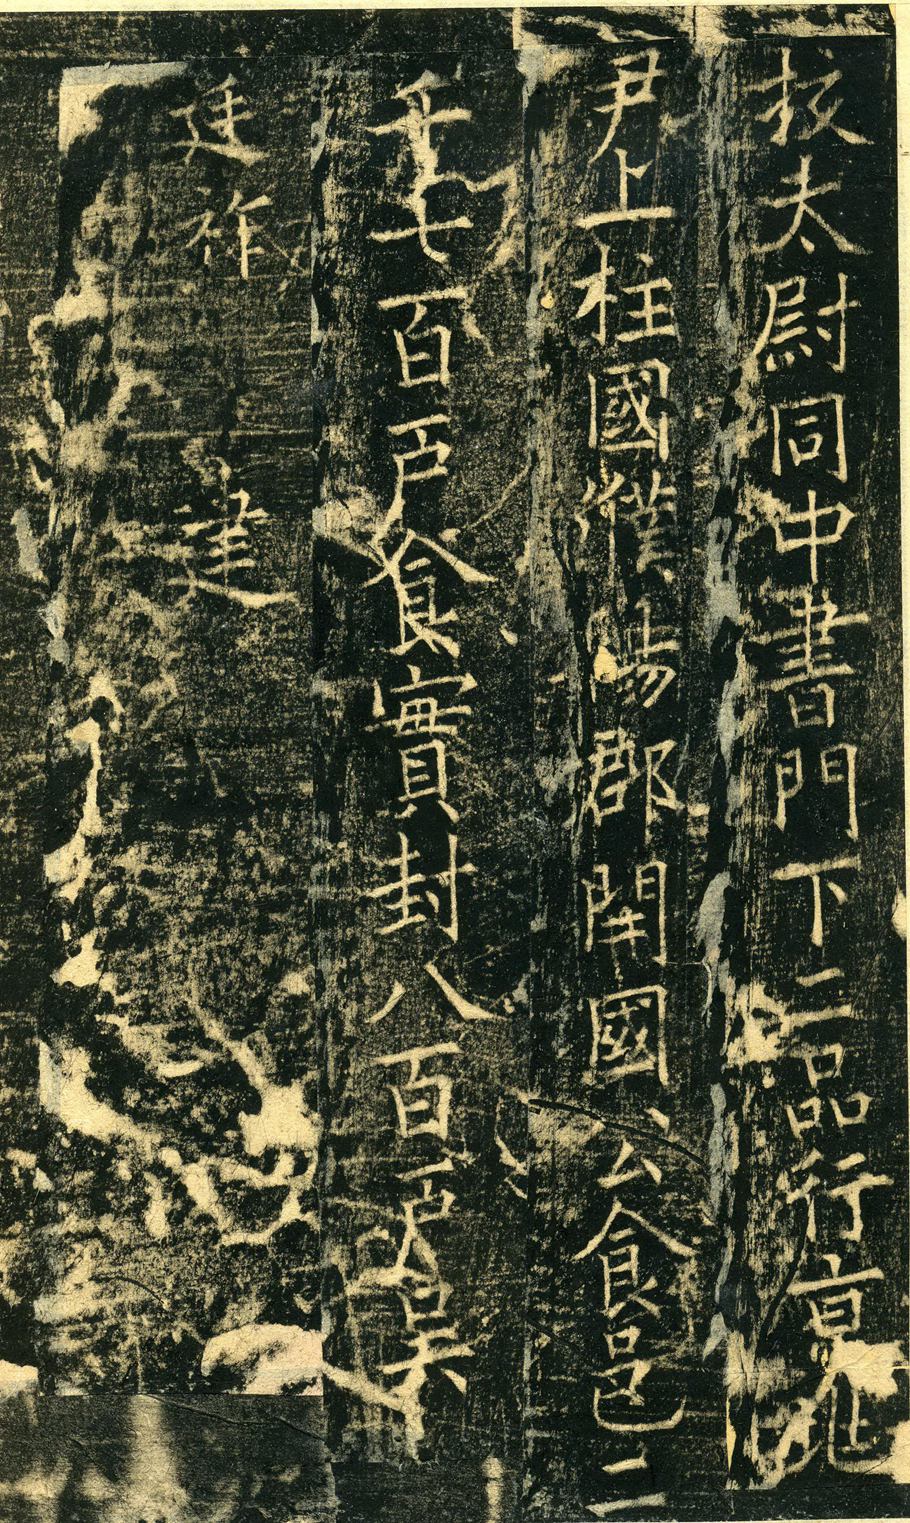 挍太尉同中書門下二品行京兆
尹上柱國濮陽郡開國公食邑二
千七百戶食實封八百戶吳
廷祚 建